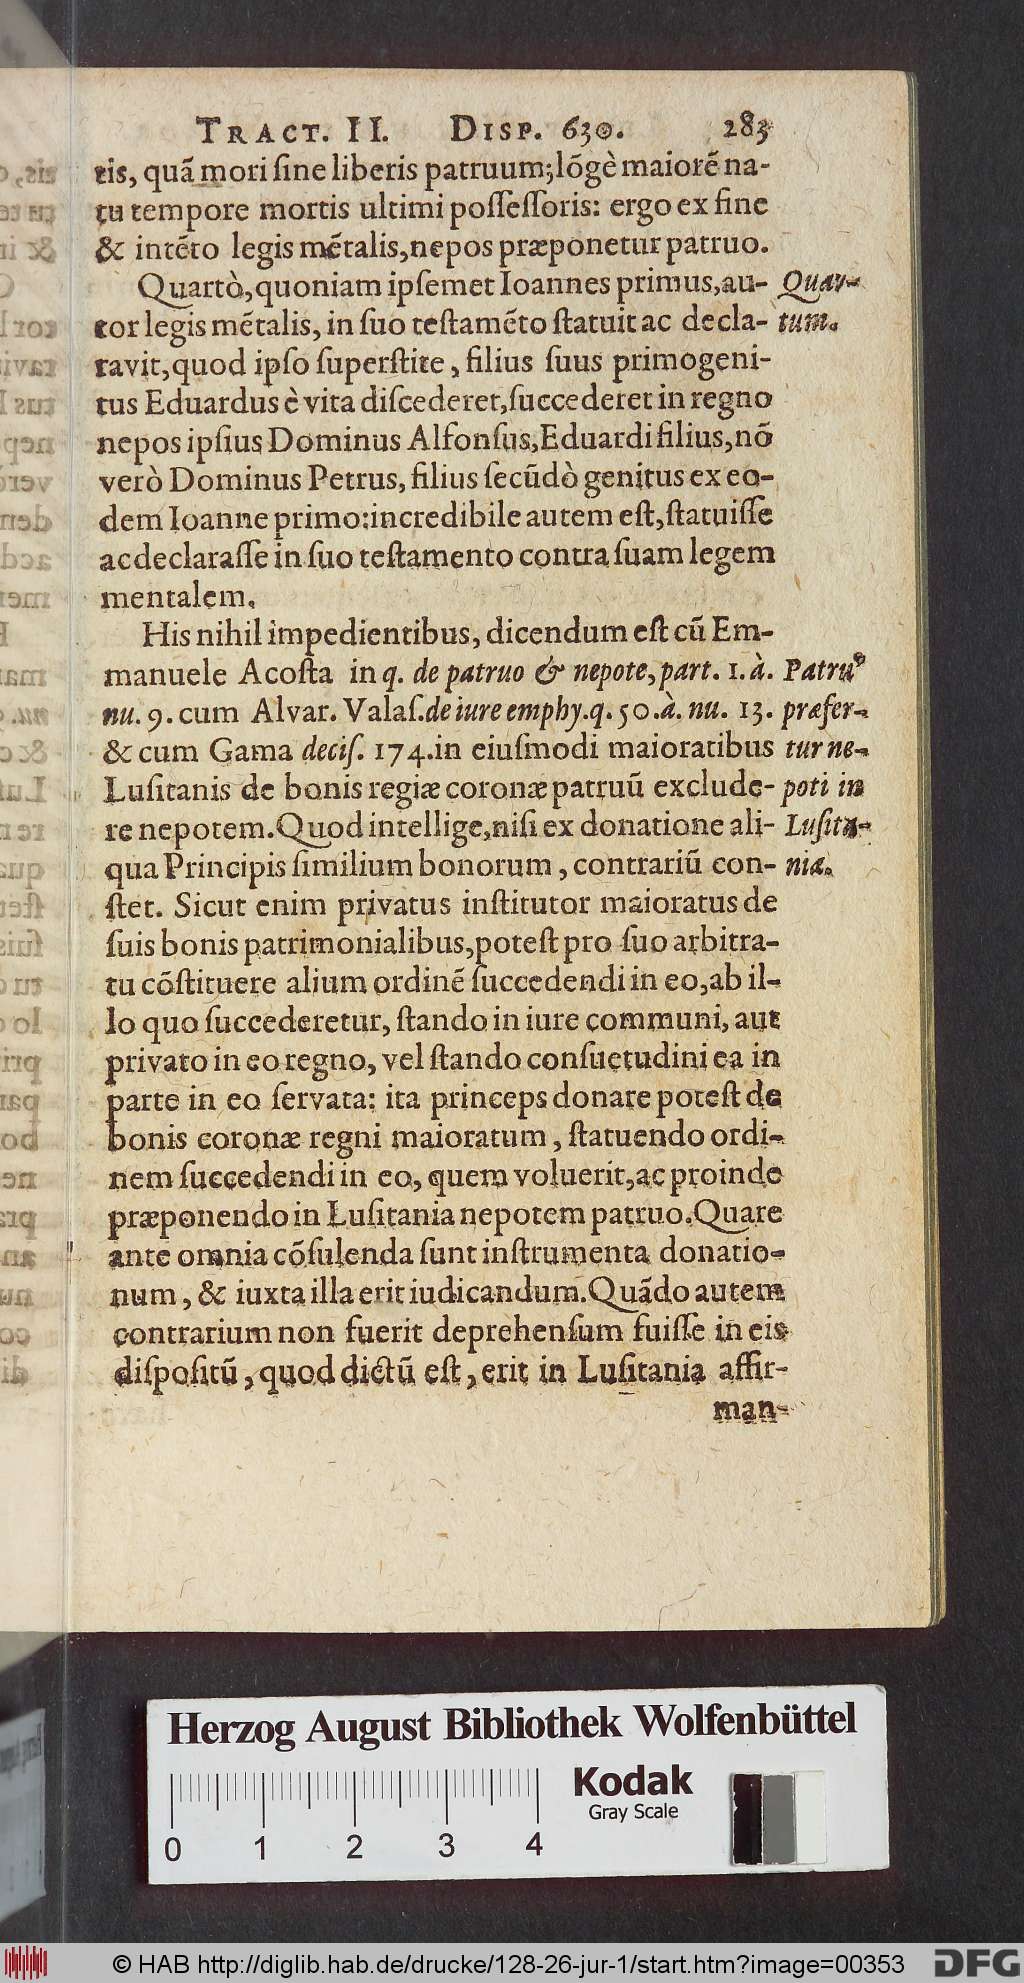 TRACT. II. DISP. 630. 283
tis, quã mori ſine liberis patruum; lõgè maiorẽ na-
tu tempore mortis ultimi poſſeſſoris: ergo ex fine
& intẽto legis mẽtalis, nepos præponetur patruo.
Quartò, quoniam ipſemet Ioannes primus, au- Quar-
tor legis mẽtalis, in ſuo teſtamẽto ſtatuit ac decla- tum.
ravit, quod ipſo ſuperſtite, filius ſuus primogeni-
tus Eduardus è vita diſcederet, ſuccederet in regno
nepos ipſius Dominus Alfonſus, Eduardi filius, nõ
verò Dominus Petrus, filius ſecũdò genitus ex eo-
dem Ioanne primo: incredibile autem eſt, ſtatuiſſe
ac declaraſſe in ſuo teſtamento contra ſuam legem
mentalem.
His nihil impedientibus, dicendum eſt cũ Em-
manuele Acoſta in q. de patruo & nepote, part. 1. à. Patruꝰ
nu. 9. cum Alvar. Valaſ. de iure emphy. q. 50. à. nu. 13. præfer-
& cum Gama deciſ. 174. in eiuſmodi maioratibus tur ne-
Luſitanis de bonis regiæ coronæ patruũ exclude- poti in
re nepotem. Quod intellige, niſi ex donatione ali- Luſita-
qua Principis ſimilium bonorum, contrariũ con- niæ.
ſtet. Sicut enim privatus inſtitutor maioratus de
ſuis bonis patrimonialibus, poteſt pro ſuo arbitra-
tu cõſtituere alium ordinẽ ſuccedendi in eo, ab il-
lo quo ſuccederetur, ſtando in iure communi, aut
privato in eo regno, vel ſtando conſuetudini ea in
parte in eo ſervata: ita princeps donare poteſt de
bonis coronæ regni maioratum, ſtatuendo ordi-
nem ſuccedendi in eo, quem voluerit, ac proinde
præponendo in Luſitania nepotem patruo. Quare
ante omnia cõſulenda ſunt inſtrumenta donatio-
num, & iuxta illa erit iudicandum. Quãdo autem
contrarium non fuerit deprehenſum fuiſſe in eis
diſpoſitũ, quod dictũ eſt, erit in Luſitania affir-
man-
Herzog August Bibliothek Wolfenbüttel
Kodak
Gray Scale
0 1 2 3 4
© HAB http://diglib.hab.de/drucke/128-26-jur-1/start.htm?image=00353
DFG